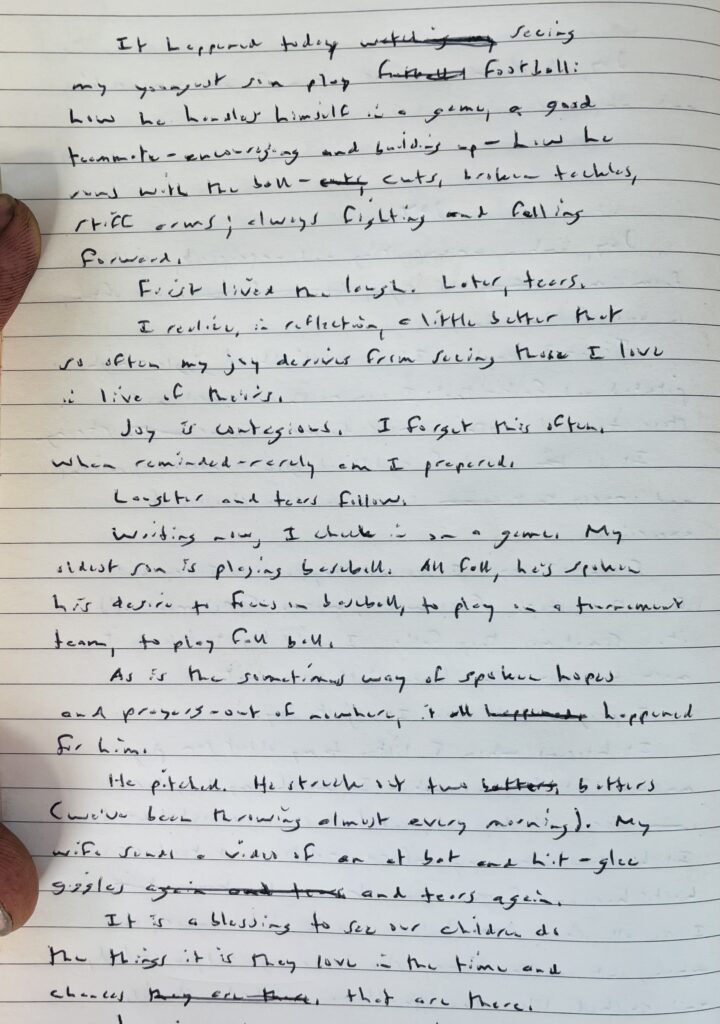 It happened today watching my seeing
my youngest son play football football:
how he handles himself in a game, a good
teammate - encouraging and building up - how he
runs with the ball - cuts, cuts, broken tackles,
stiff arms; always fighting and falling
forward.
First lived the laugh. Later, tears.
I realize, in reflection, a little better that
so often my joy derives from seeing those I love
in live of theirs.
Joy is contagious. I forget this often.
When reminded - rarely am I prepared.
Laughter and tears follow.
Writing now, I check in on a game. My
oldest son is playing baseball. All fall, he's spoken
his desire to focus on baseball, to play on a tournament
team, to play fall ball.
As is the sometimes way of spoken hopes
and prayers - out of nowhere, it all happened happened
for him.
He pitched. He struck out two batters, batters
(we've been throwing almost every morning). My
wife sends a video of an at bat and hit - glee
giggles again and tears and tears again.
It is a blessing to see our children do
the things it is they love in the time and
chances they are there. that are there.